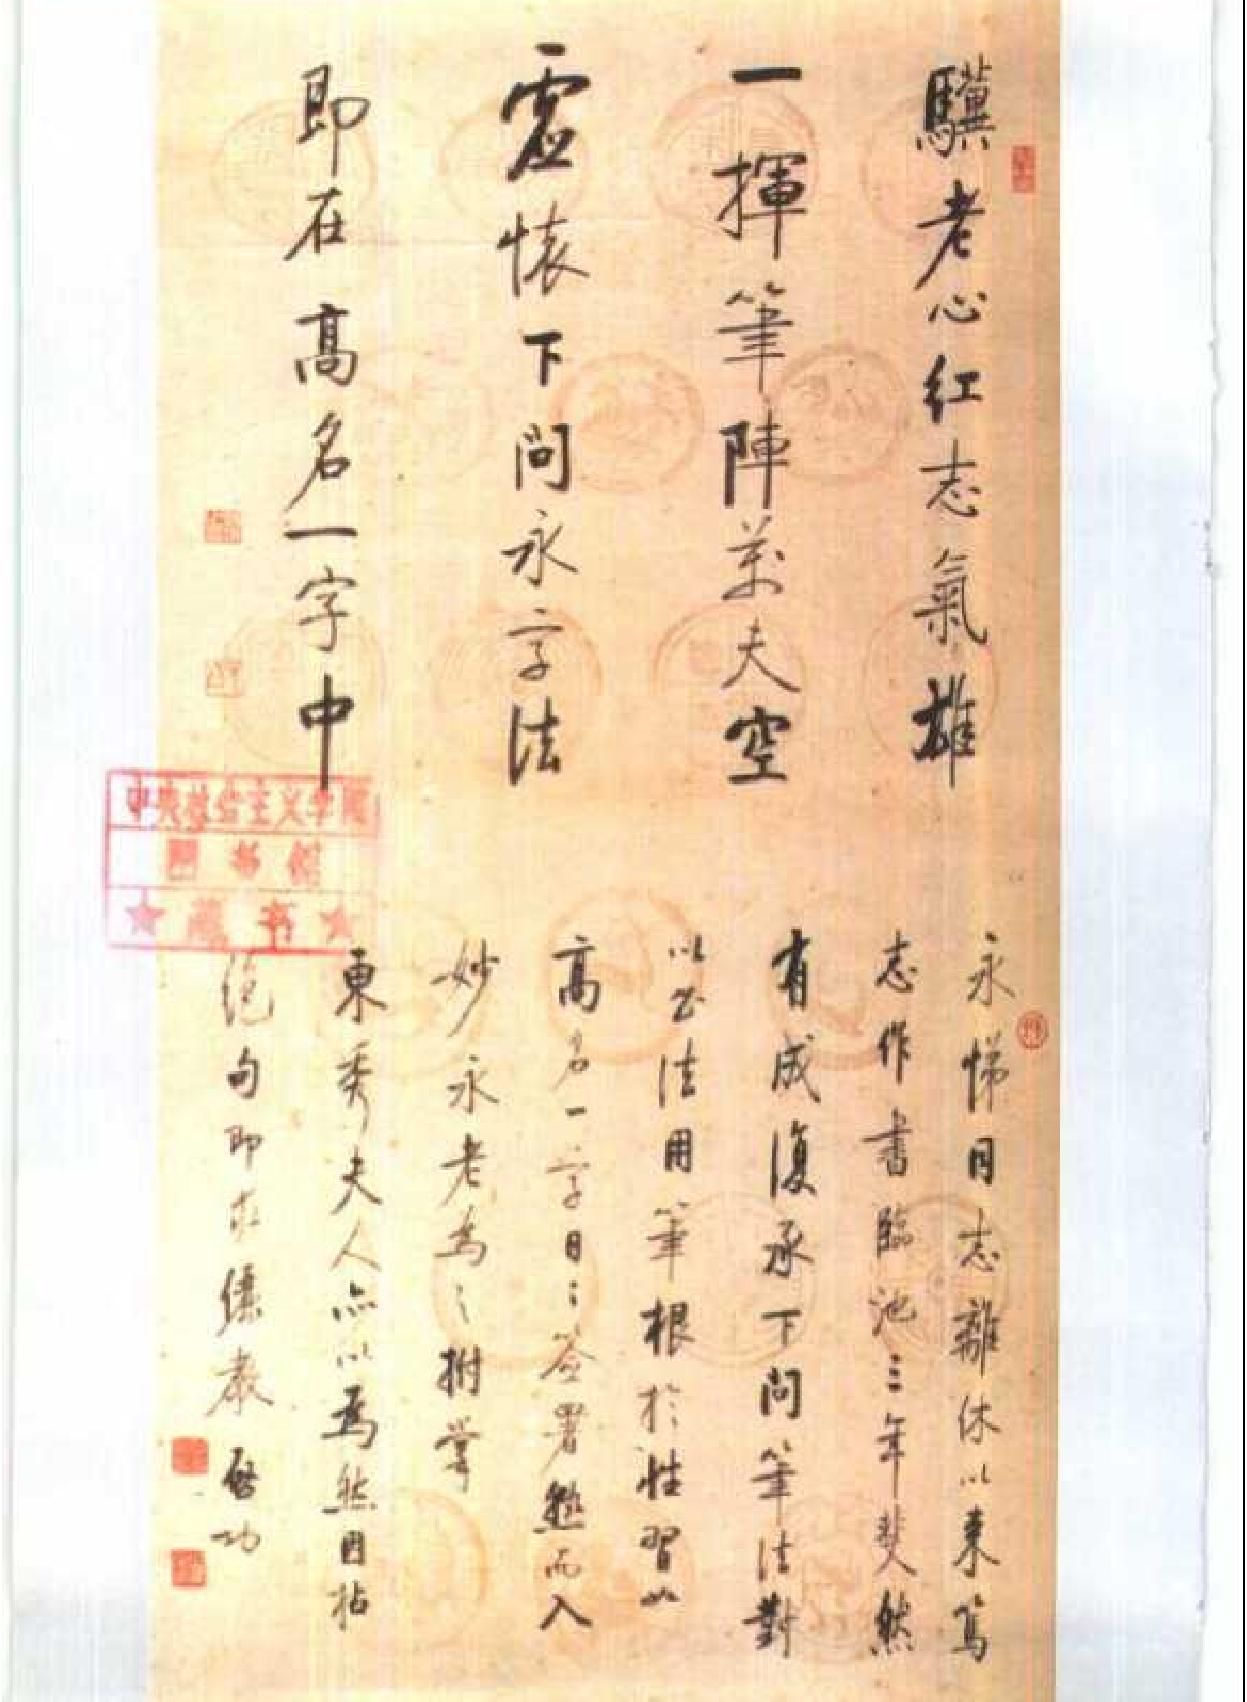 驥老心紅志氣雄
一揮筆陣萬夫空
虛懷下問永字法
即在高名一字中
永悌同志離休以來篤
志作書臨池三年斐然
有成復承下問筆法對
以書法用筆根於性習如
高名一字日〻簽署熟而入
妙永老為〻拊掌
東秀夫人亦以為然因拈
絕句即求儷教 啟功
中央社会主义学院
图书馆
★藏书★